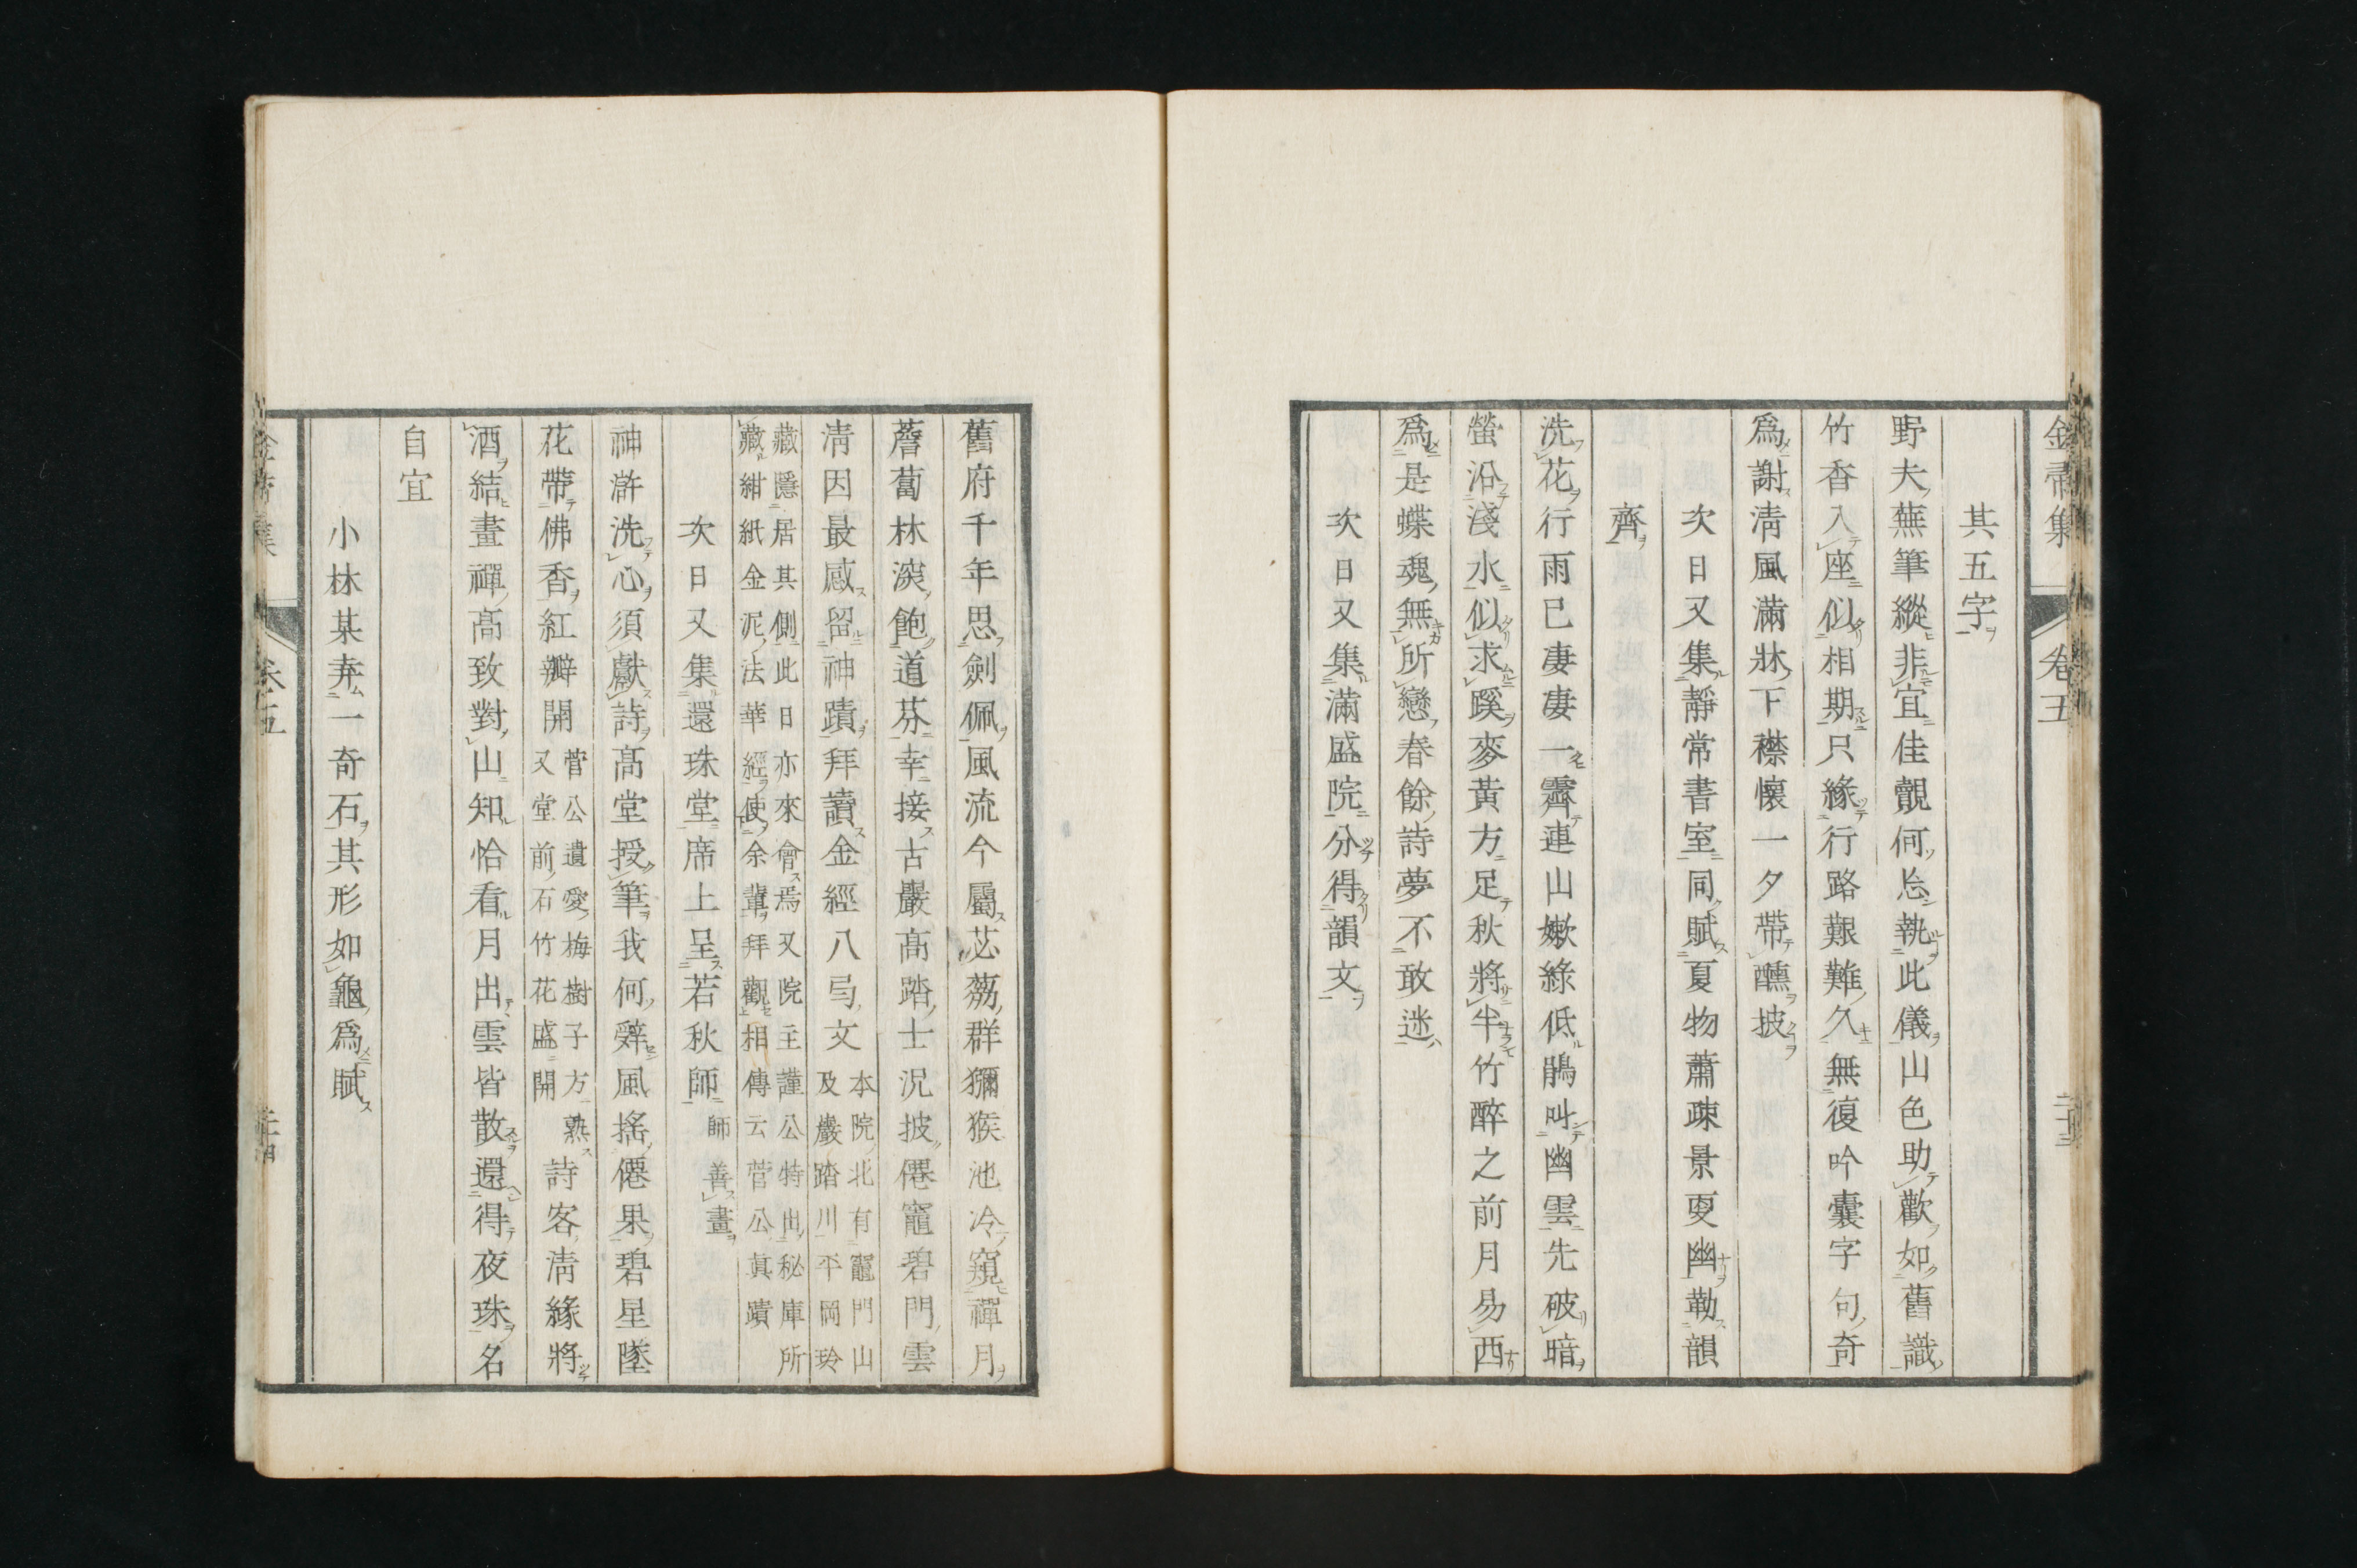 金帚集 卷五
其五字
野夫蕪筆縱非宜佳覿何忘執此儀山色助歡如舊識
竹香入座似相期只緣行路艱難久無復吟囊字句奇
爲謝淸風滿牀下襟懷一夕帶醺披
次日又集靜常書室同賦夏物蕭疎景更幽勒韻
齊
洗花行雨已凄凄一霽連山嫩綠低鵑叫幽雲先破暗
螢沿淺水似求蹊麥黃方足秋將半竹醉之前月易西
爲是蝶魂無所戀春餘詩夢不敢迷
次日又集滿盛院分得韻文
舊府千年思劍佩風流今屬苾蒭群獼猴池冷窺禪月
薝蔔林深飽道芬幸接古巖高踏士況披僊竈碧門雲
淸因最感留神蹟拜讀金經八弓文
本院北有竈門山
及巖踏川平岡玲
藏隱居其側此日亦來會焉又院主謹公特出秘庫所
藏紺紙金泥法華經使余輩拜觀相傳云菅公眞蹟
次日又集還珠堂席上呈若秋師
師善畫
神滸洗心須獻詩高堂授筆我何辭風搖僊果碧星墜
花帶佛香紅瓣開
菅公遺愛梅樹子方熟
又堂前石竹花盛開
詩客淸緣將
酒結畫禪高致對山知恰看月出雲皆散還得夜珠名
自宜
小林某弆一奇石其形如龜爲賦
金帚集 卷五